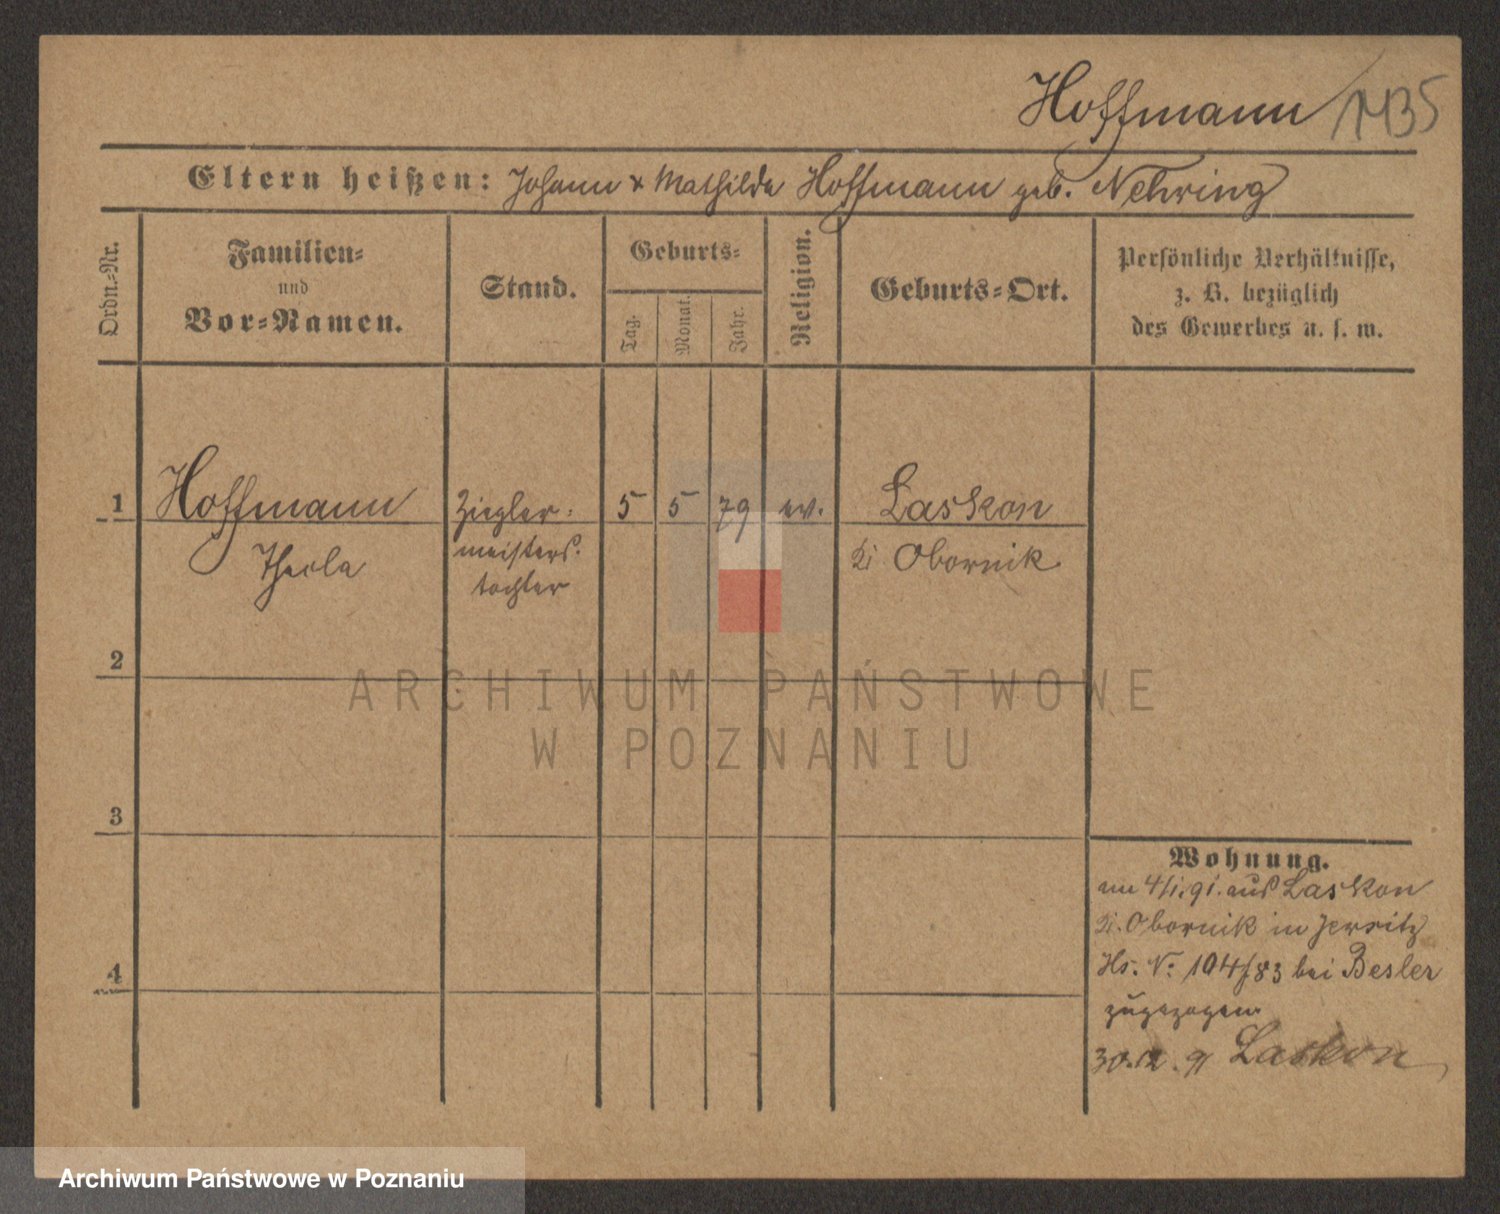 Hoffmann
1435
Eltern heißen: Johann & Mathilde Hoffmann geb. Nehring
Ordn.-Nr.
Familien-
und
Vor-Namen.
Stand.
Geburts-
Tag.
Monat.
Jahr.
Religion.
Geburts-Ort.
Persönliche Verhältnisse,
z. B. bezüglich
des Gewerbes u. s. w.
1 Hoffmann Ziegler- 5 5 79 ev. Laskon
Thecla meisters- Kr Obornik
tochter
2
ARCHIWUM PAŃSTWOWE
W POZNANIU
3
Wohnung.
am 4/1.91. aus Laskon
Kr. Obornik in Jersitz
4
Hs. No: 104/83 bei Besler
zugezogen.
30.12.91 Laskon
Archiwum Państwowe w Poznaniu